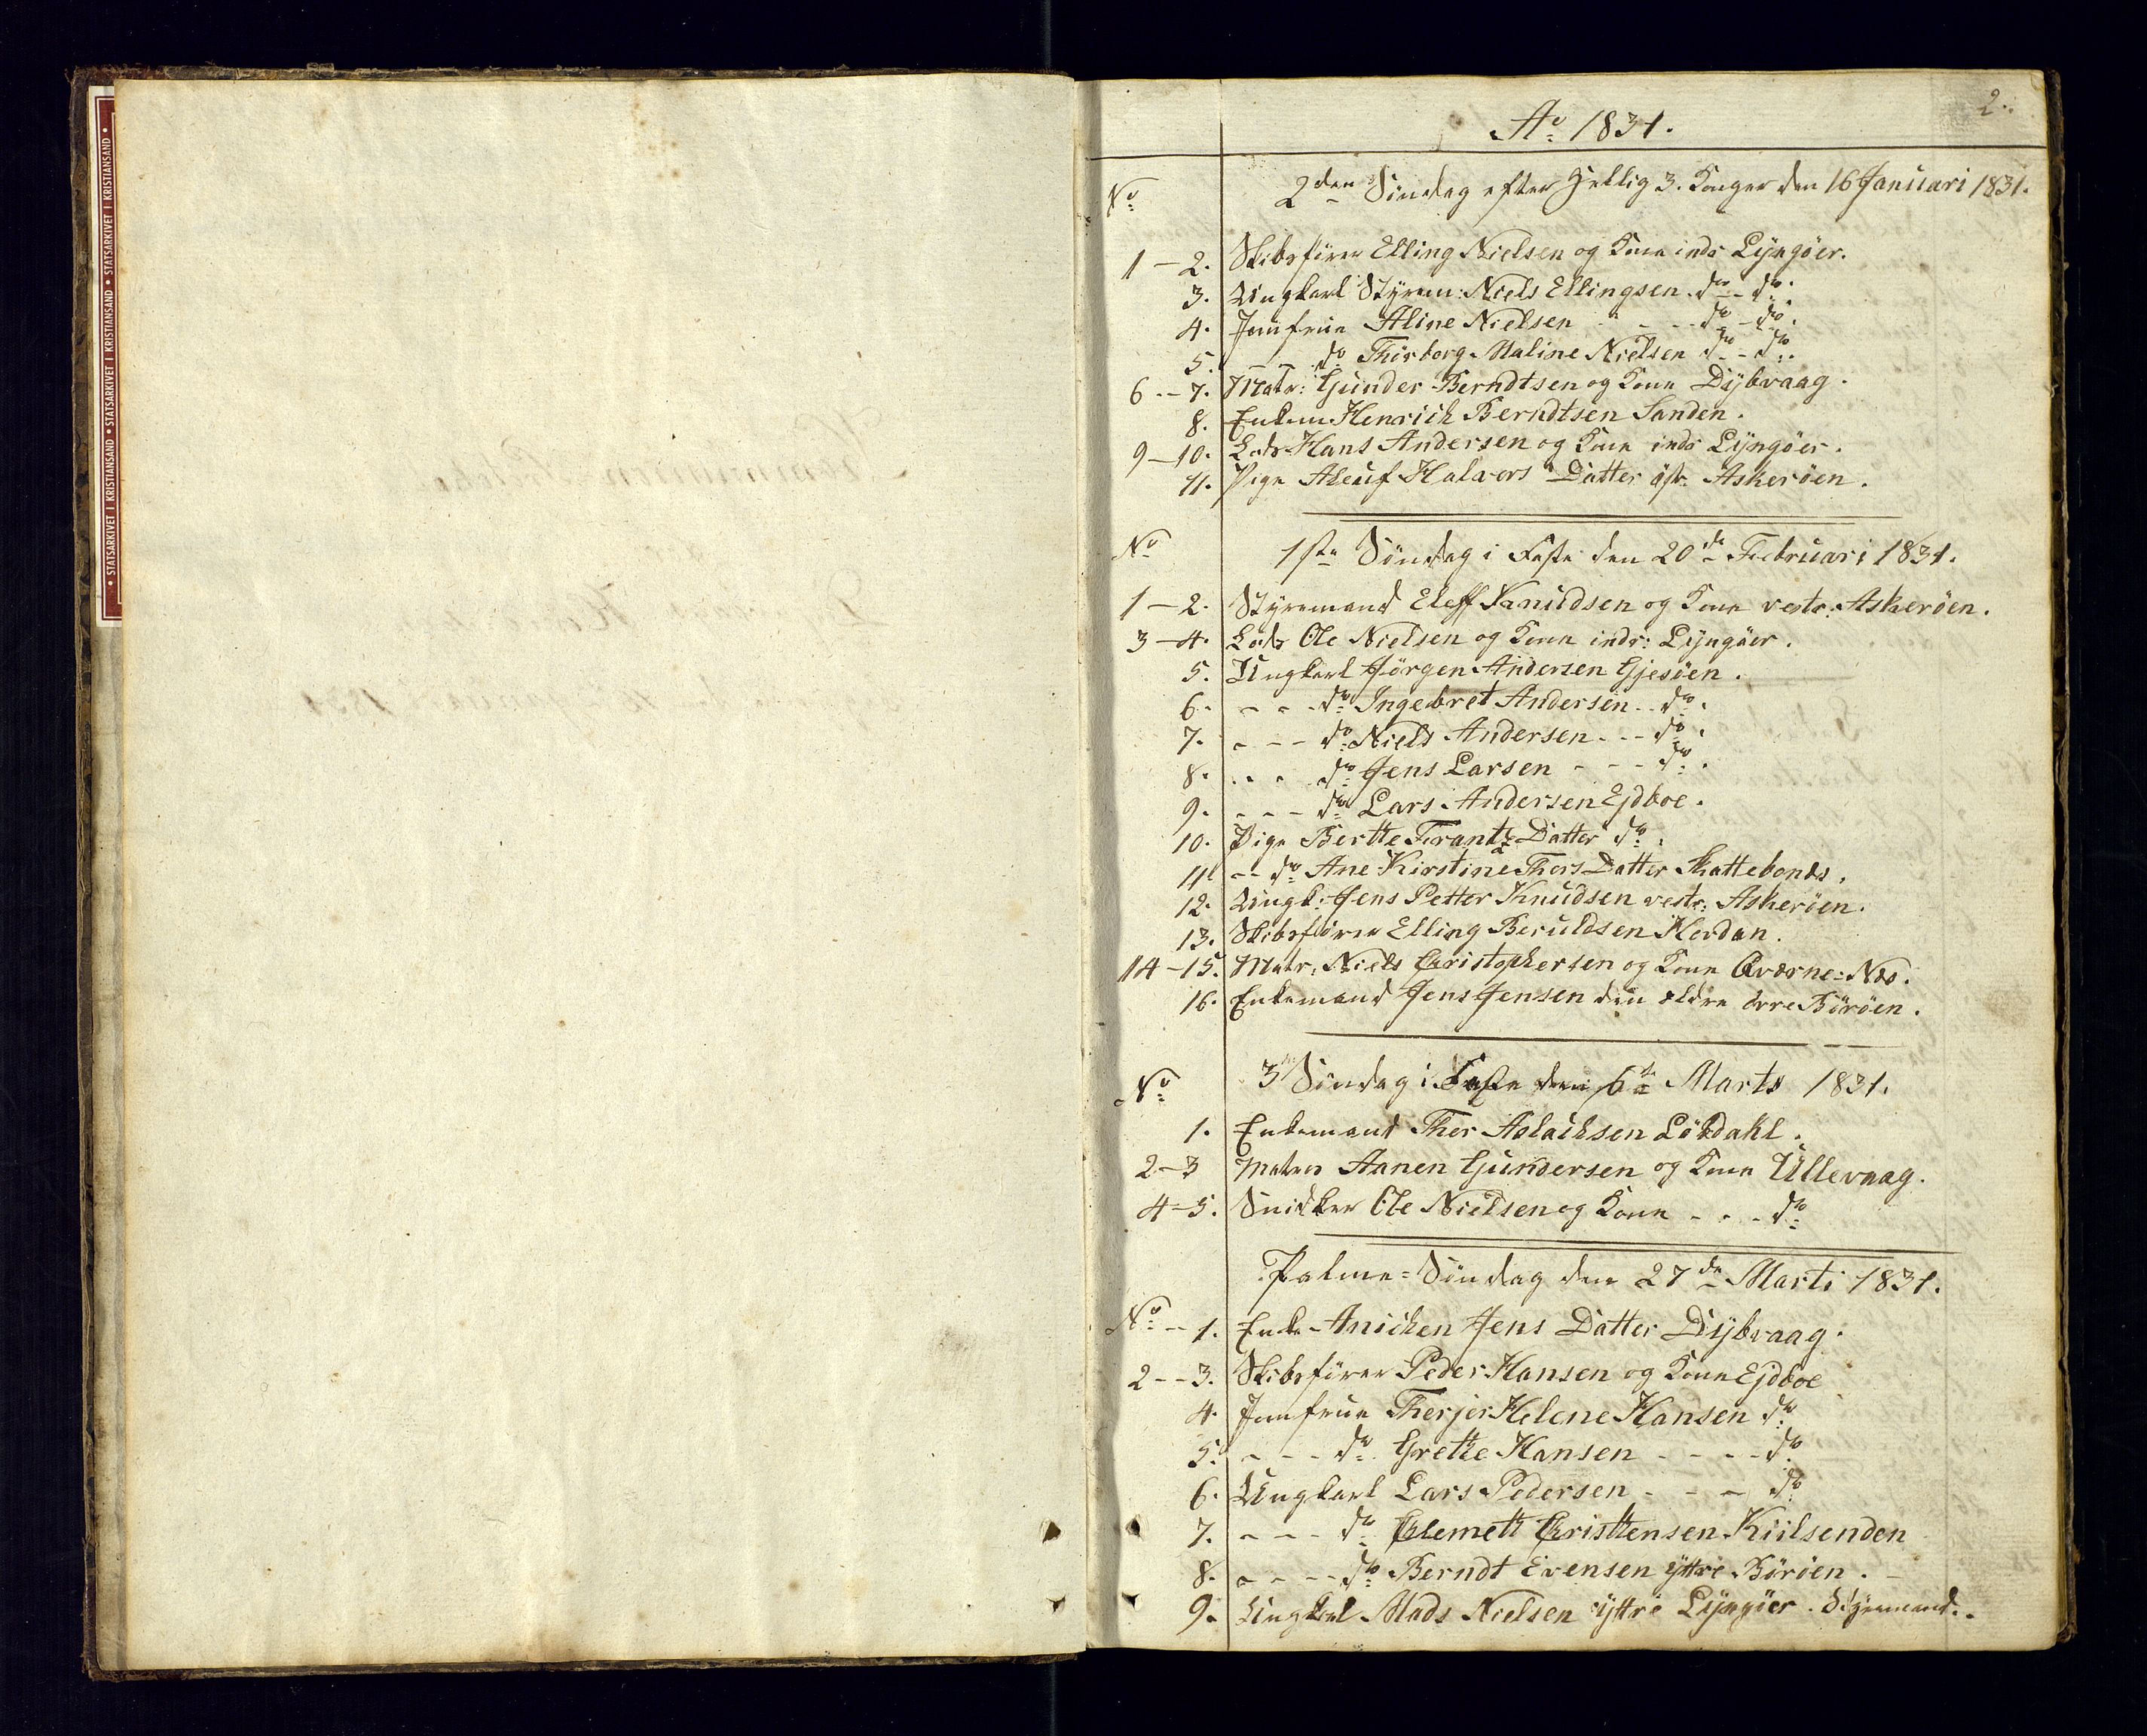 • STATSARKIVET I KRISTIANSAND • STATSARKIVET I KRISTIANSAND • STATSARKIVET I KRISTIANSAND •
2.
Ao 1831.
No 2den Søndag efter Hellig 3. Konger den 16 Januari 1831.
1-2. Skibsfører Elling Nielsen og Kone indr Lyngöer.
3. Ungkarl Styrm: Niels Ellingsen. do - do.
4. Jomfrue Aline Nielsen - - - do - do.
5. - - do Thorborg Maline Nielsen do - do.
6--7. Matr: Gunder Berndtsen og Kone Dybvaag.
8. Enkem Henrich Berndtsen Sanden.
9-10. Lods Hans Andersen og Kone indr Lyngöer.
11. Pige Aleuf Halvors Datter østr. Askeröen.
No 1ste Søndag i Faste den 20de Februari 1831.
1-2. Styrmand Eleff Knudsen og Kone vestr: Askeröen.
3-4. Lods Ole Nielsen og Kone indr: Lyngöer.
5. Ungkarl Jörgen Andersen Gjesöen.
6. - - - do Ingebret Andersen - - do.
7. - - - do Niels Andersen - - - do.
8. - - do Jens Larsen - - - do.
9. - - - do Lars Andersen Ejdboe.
10. Pige Berthe Frantz Datter do.
11. -- do Ane Kirstine Thors Datter Skattebonds.
12. Ungk: Jens Petter Knudsen vestr: Askeröen.
13. Skibsfører Elling Beruldsen Klerdan.
14-15. Matr: Niels Christophersen og Kone Qværne-Nes.
16. Enkemand Jens Jensen den ældre Böröen.
No 3 Søndag i Faste den 6te Marts 1831.
1. Enkemand Thor Aslachsen Lökdahl.
2-3 Matros Aanen Gundersen og Kone Ullevaag.
4-5. Snidker Ole Nielsen og Kone - - - do
Palme-Søndag den 27de Marti 1831.
No -- 1. Enke Anichen Jens Datter Dybvaag.
2--3. Skibsfører Peder Hansen og Kone Ejdboe
4. Jomfrue Therjer Helene Hansen do
5. - - - do Grethe Hansen - - - - do
6. Ungkarl Lars Pedersen - - - do
7. - - - do Clemett Christensen Kiilsenden
8. - - - - do Berndt Evensen yttre Böröen.
9. Ungkarl Mads Nielsen yttre Lyngöer. Styrmand.